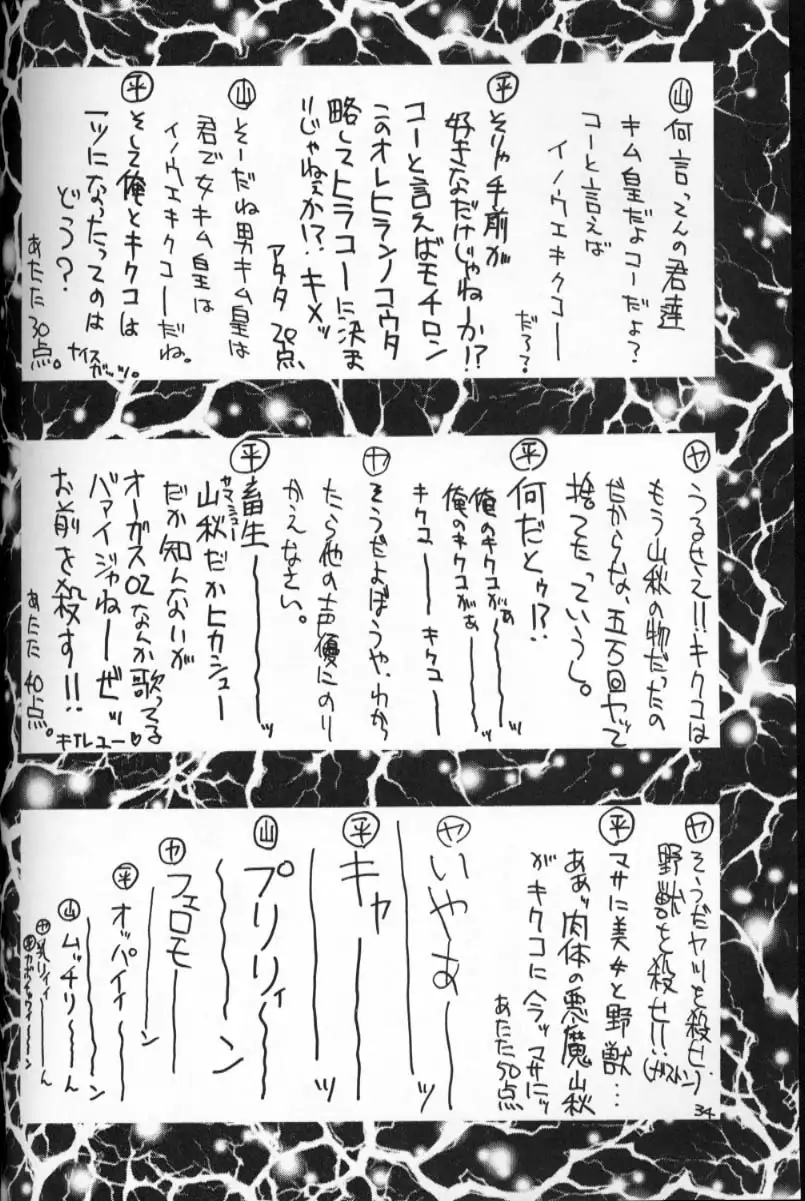 山 何言ってんの君達
キム皇だよコーだよ?
コーと言えば
イノウエキクコー
だろ?
平 そりゃ手前が
好きなだけじゃねーか!?
コーと言えばモチロン
このオレヒランノコウタ
略してヒラコーに決ま
りじゃねぇか!?キメッ
アタタ 20点、
山 そーだね男キム皇は
君で女キム皇は
イノウエキクコーだね。
平 そして俺とキクコは
一ツになったってのは
どう?
ナイスガッツ。
あたた 30点。
ヤ うるせえ!!キクコは
もう山秋の物だったの
だからな、五万回ヤッて
捨てたっていうし。
平 何だとゥ!?
俺のキクコがぁ〜〜〜ッ
俺のキクコがぁ〜〜〜ッ
キクコ――キクコ――
ヤ そうだよぼうや、わかっ
たら他の声優にのり
かえなさい。
平 畜生〜〜〜〜ッ
山秋だかヒカシュー
ヤマシュー
だか知んないが
オーガス02なんか歌ってる
バァイジャねーぜッ
お前を殺す!!
キTレユー♡
あたた 40点。
ヤ そうだヤツを殺せ、
野獣を殺せ!!(ガストン)
平 マサに美女と野獣…
ああッ肉体の悪魔山秋
がキクコに今ッマサにッ
あたた50点
ヤ いやぁ――――ッ
平 キャ――――ッ
山 プリリィ〜〜〜〜ン
ヤ フェロモ――――ン
平 オッパイィ〜〜〜〜ン
山 ムッチリ〜〜ん
ヤ 乳リィィ――ん
34